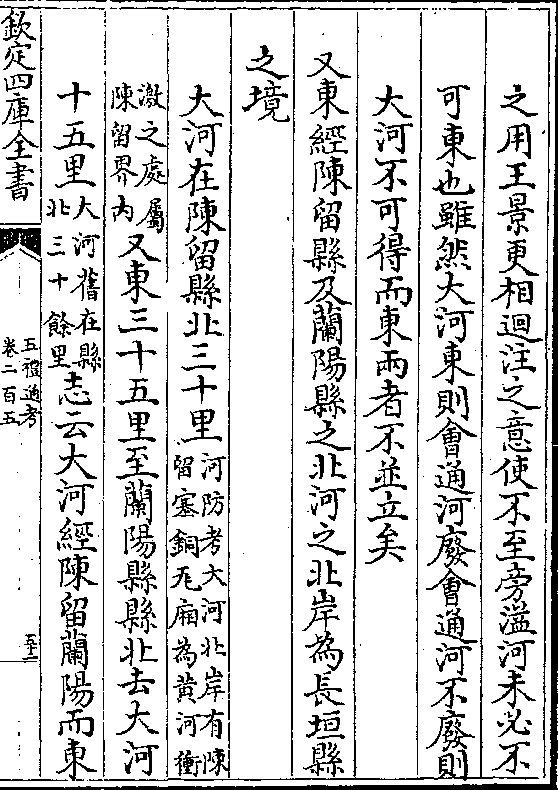 之用王景更相迴注之意使不至旁溢河未必不
可東也雖然大河東則會通河廢會通河不廢則
大河不可得而東兩者不並立矣
又東經陳留縣及蘭陽縣之北河之北岸為長垣縣
之境
大河在陳留縣北三十里河防考大河北岸有陳留塞銅瓦廂為黃河衝
激之處屬陳留界内又東三十五里至蘭陽縣縣北去大河
十五里大河舊在縣北三十餘里志云大河經陳留蘭陽而東
欽定四庫全書
五禮通考
卷二百五
五十二